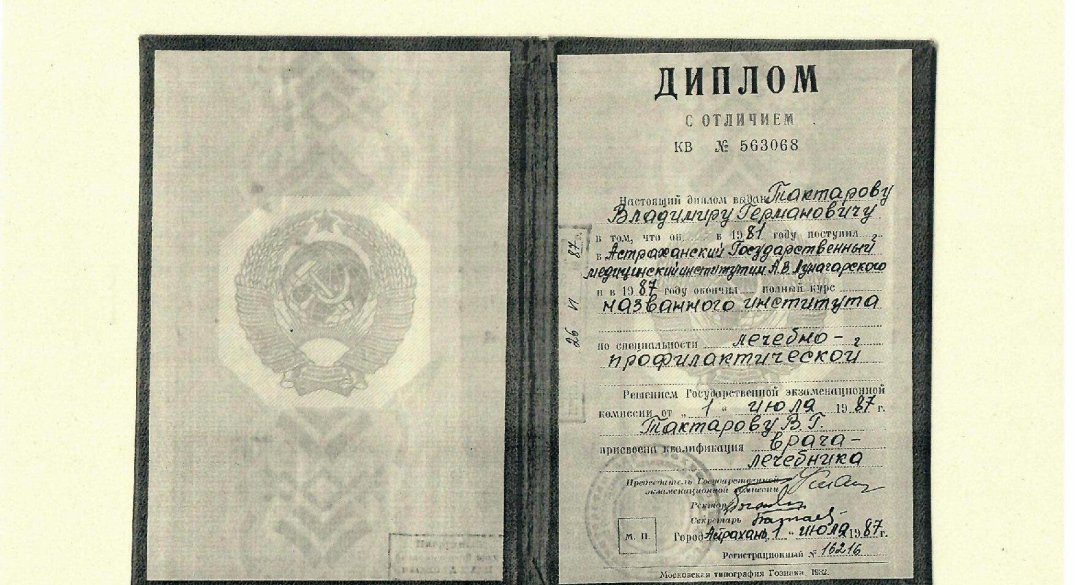 ДИПЛОМ
С ОТЛИЧИЕМ
КВ № 563068
Настоящий диплом выдан Тактарову
Владимиру Германовичу
в том, что он в 1981 году поступил
в Астраханский Государственный
медицинский институт им. А.В. Луначарского
и в 1987 году окончил полный курс
названного института
по специальности лечебно-
профилактической
Решением Государственной экзаменационной
комиссии от „ 1 “ июля 1987 г.
Тактарову В.Г.
присвоена квалификация врача-
лечебника
Председатель Государственной
экзаменационной комиссии
Ректор
Секретарь
М. П.
Город Астрахань, 1 " июля 1987 г.
Регистрационный № 16216
Московская типография Гознака.
26 VI 87 г.